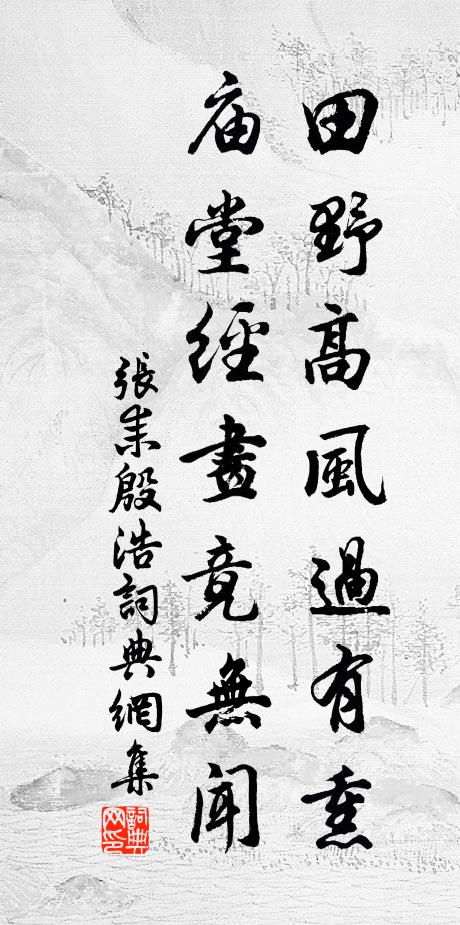 田野髙風過有
庙堂經畫竟無聞
張耒殷浩詞典網集
詞典
网印